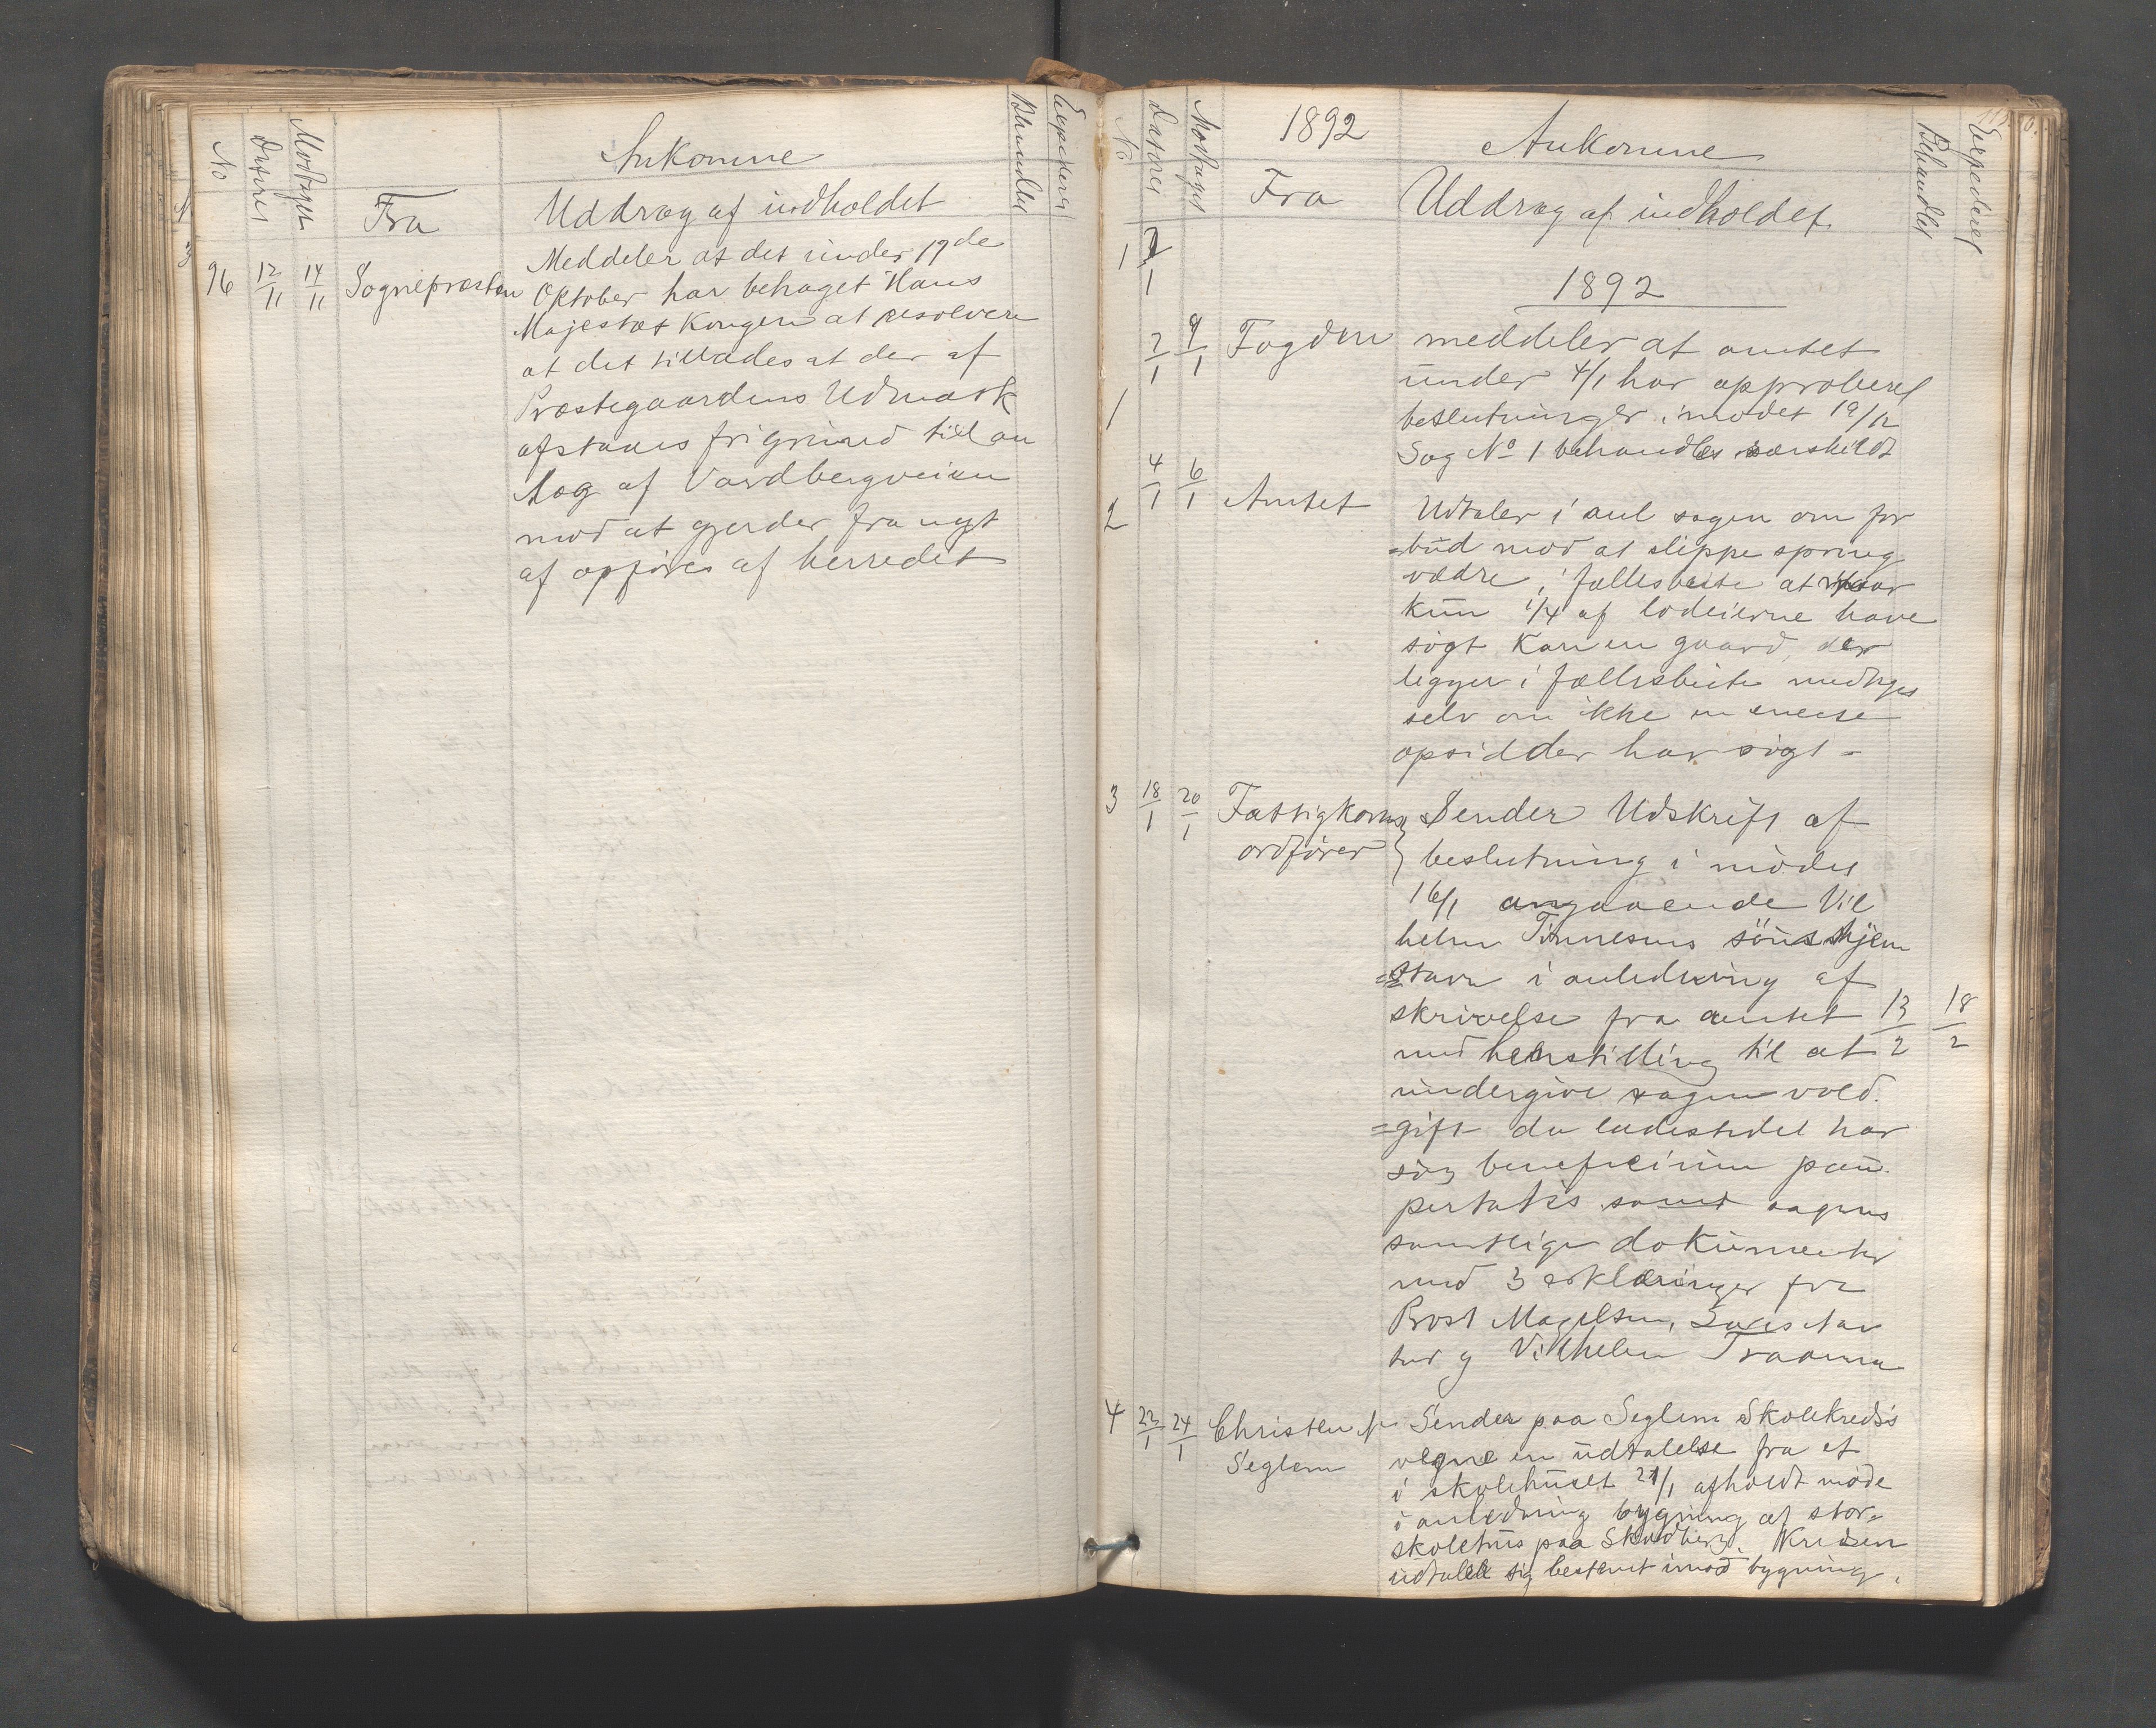 Ankomne
No
Dateret
Modtaget
Fra
Uddrag af indholdet
Behandlet
Expederet
96 12/11 14/11 Sognepræsten
Meddeler at det under 17de
Oktober har behaget Hans
Majestæt Kongen at resolvere
at det tillades at der af
Præstegaardens Udmark
afstaaes fri grund til an
læg af Vardbergveien
mod at gjerder fra nyt
af opføres af herredet
1892
Ankomne
No
Dateret
Modtaget
Fra
Uddrag af indholdet
Behandlet
Expederet
1892
1 7/1 9/1 Fogden meddeler at amtet
under 4/1 har approberet
beslutninger i mødet 19/12
Sag No 1 behandles særskildt
2 4/1 6/1 Amtet Udtaler i anl sagen om for
=bud mod at slippe spring
vædre i fællesbeite at naar
kun 1/4 af lodeierne have
søgt kan en gaard, der
legger i fællesbeite medtages
selv om ikke en eneste
opsidder har søgt -
3 18/1 20/1 Fattigkoms ordfører
Sender Udskrift af
beslutning i mødet
16/1 angaaende Vil
helm Tønnesens søns hjem
=stavn i anledning af
skrivelse fra amtet 13/2 18/2
med henstilling til at
undergive sagen vold.
=gift da ladestedet har
søg beneficium pau.
pertatis samt sagens
samtlige dokumenter
med 3 erklæringer fra
Prost Magelsen,
og Vilhelm
4 23/1 24/1 Christen N Seglem
Sender paa Seglem Skolekreds's
vegne en udtalelse fra et
i skolehuset 21/1 afholdt møde
i anledning bygning af stor=
skolehus paa Skadberg. Kredsen
udtaler sig bestemt imod bygning.